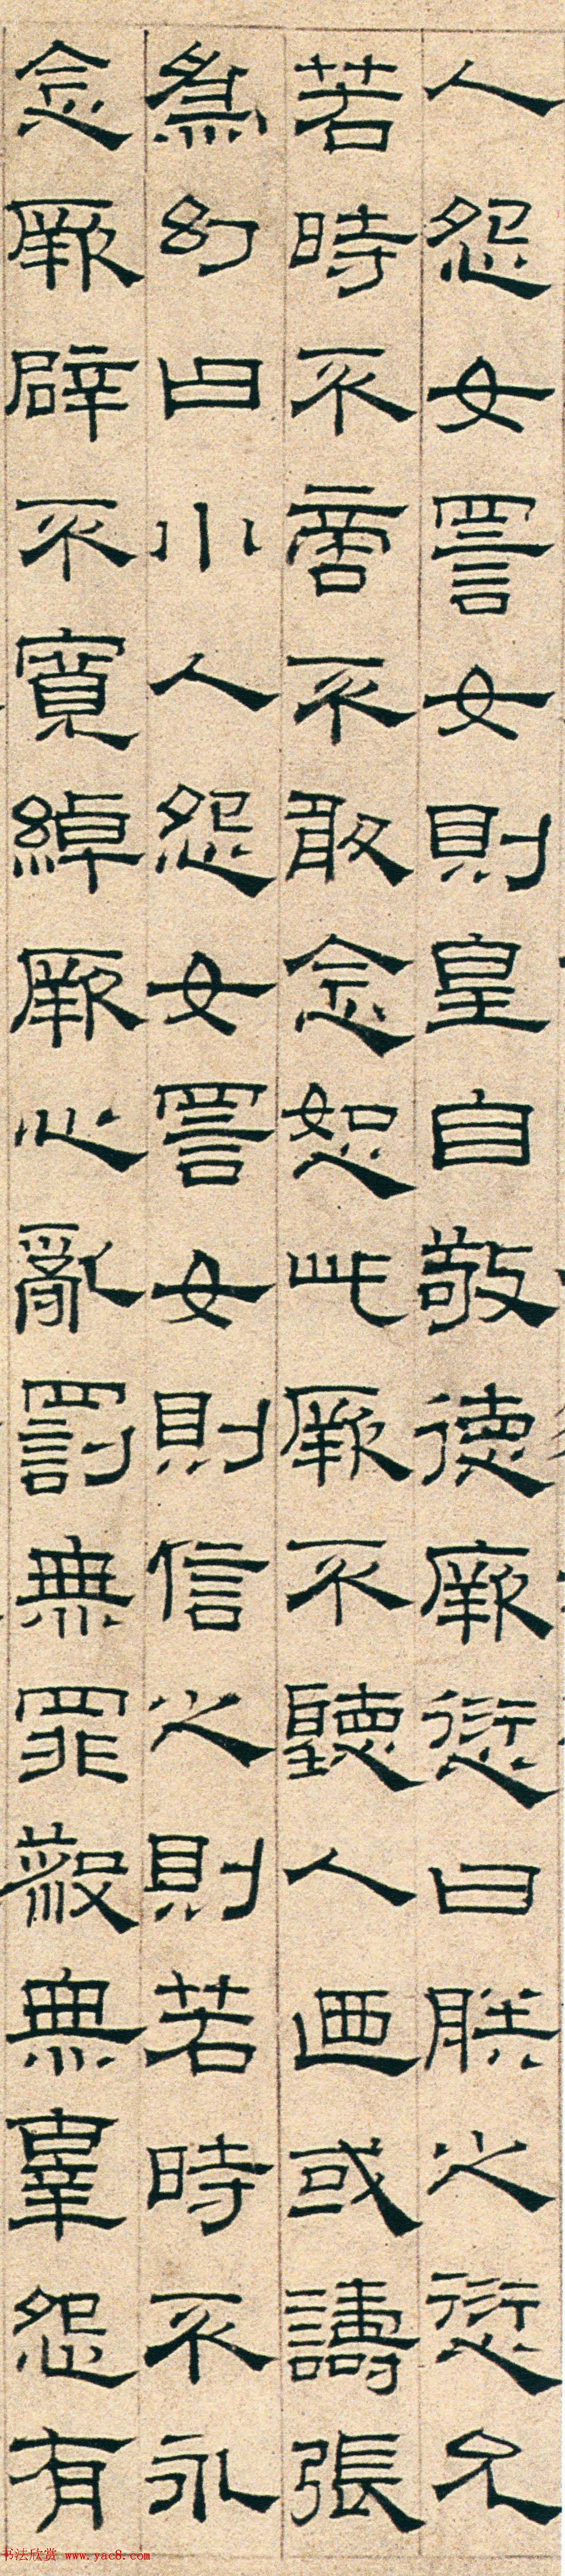 人怨女詈女則皇自敬德厥愆曰朕之愆允
若時不啻不敢念恕此厥不聽人迺或譸張
為幻曰小人怨女詈女則信之則若時不永
念厥辟不寬綽厥心亂罰無罪殺無辜怨有
书法欣赏 www.yac8.com